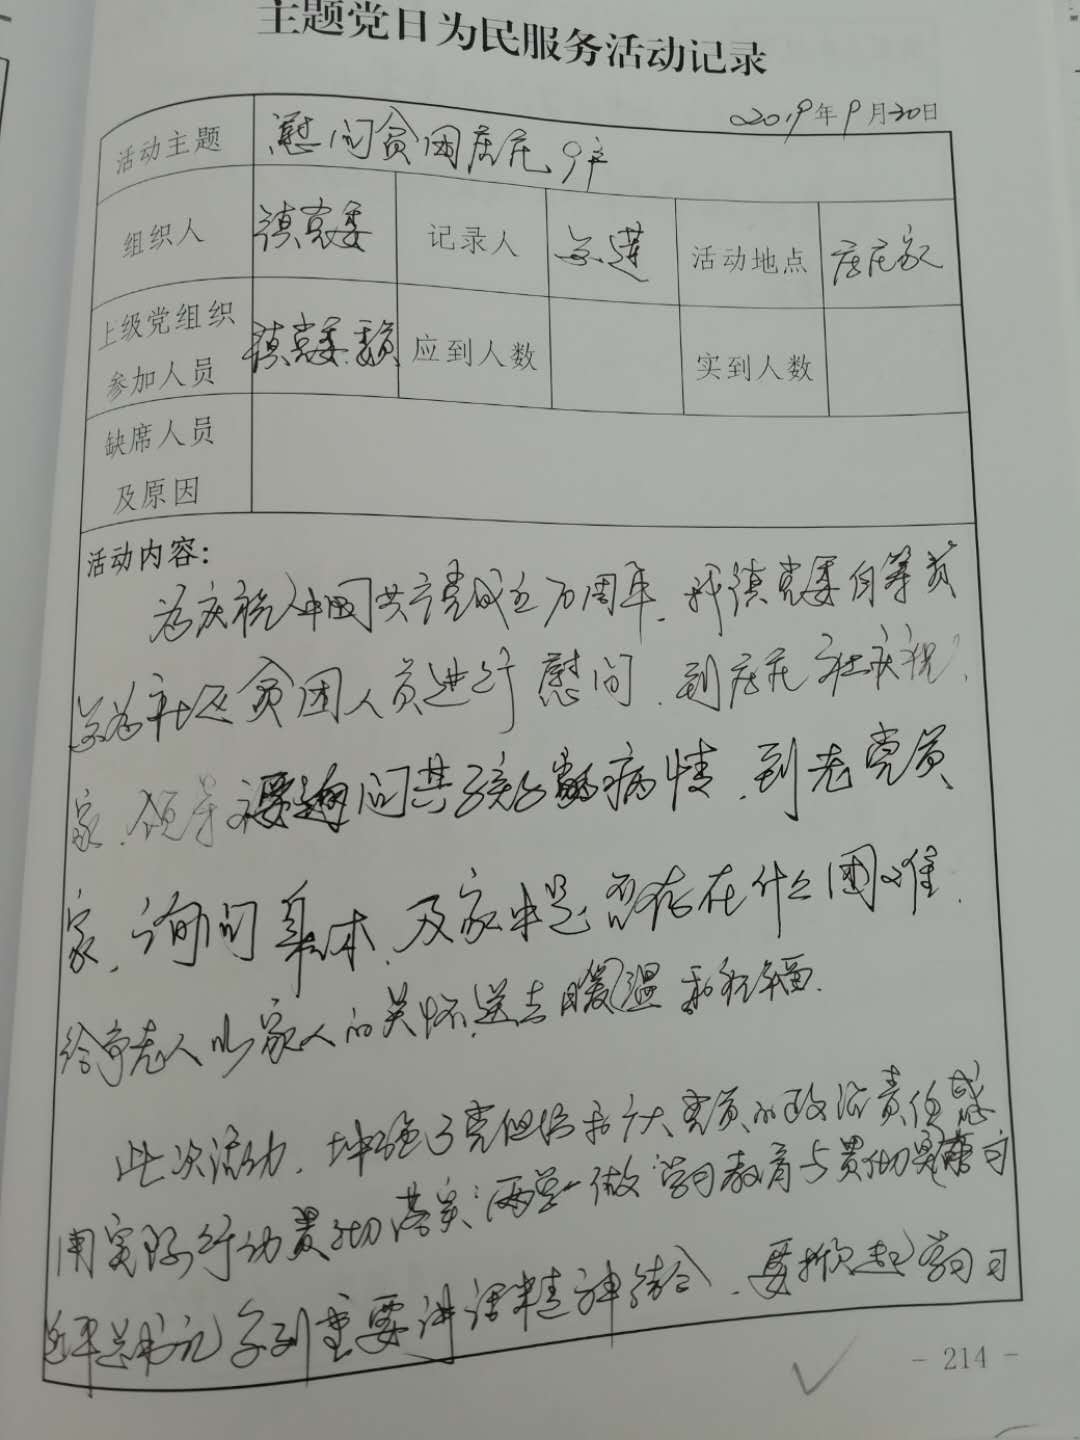 主题党日为民服务活动记录
2019年9月30日
活动主题 慰问贫困居民9户
组织人 镇党委 记录人 活动地点 居民家
上级党组织 镇党委 应到人数 实到人数
参加人员
缺席人员
及原因
活动内容：
为庆祝中国共产党成立70周年，我镇党委自筹资
社区贫困人员进行慰问，到居民杜庆祝
家，领导询问其病情，到老党员
家，询问身体，及家中是否存在什么困难，
给老人以家人的关怀，送去暖温和祝福。
此次活动，增强了党组织和广大党员的政治责任感
用实际行动贯彻落实“两学一做”学习教育与贯彻习
近平总书记系列重要讲话精神结合，要掀起学习习
- 214 -